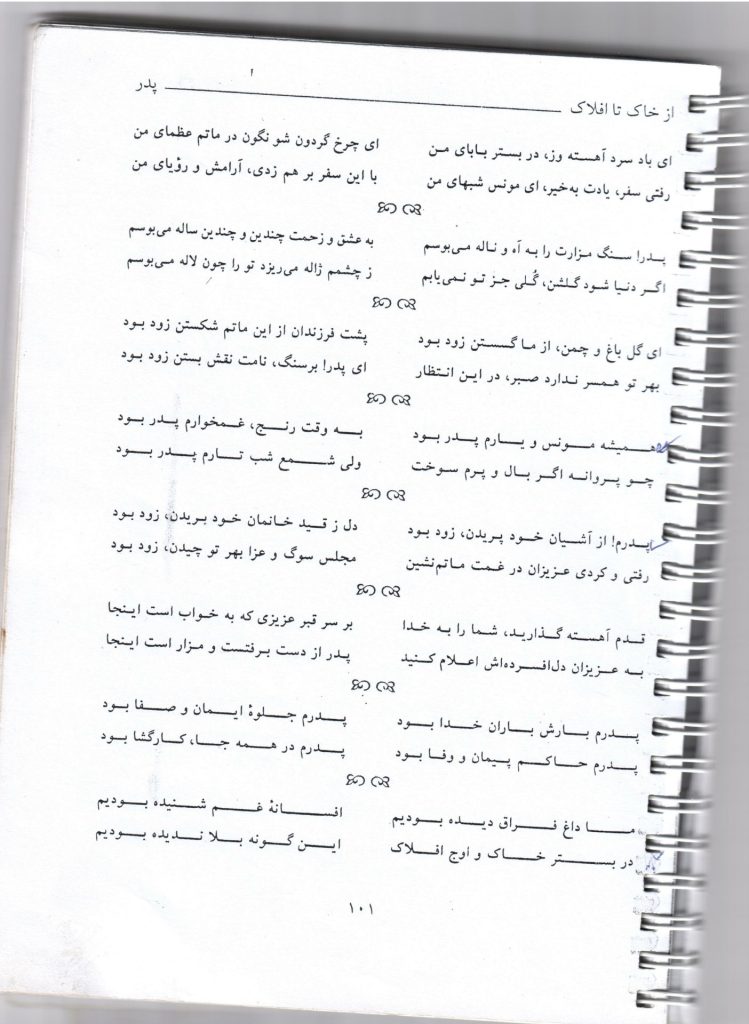 از خاک تا افلاک پدر
ای باد سرد آهسته وز، در بستر بابای من ای چرخ گردون شو نگون در ماتم عظمای من
رفتی سفر، یادت به‌خیر، ای مونس شبهای من با این سفر بر هم زدی، آرامش و رؤیای من
پدر! سنگ مزارت را به آه و ناله می‌بوسم به عشق و زحمت چندین و چندین ساله می‌بوسم
اگر دنیا شود گلشن، گُلی جز تو نمی‌یابم ز چشمم ژاله می‌ریزد تو را چون لاله می‌بوسم
ای گل باغ و چمن، از ما گسستن زود بود پشت فرزندان از این ماتم شکستن زود بود
بهر تو همسر ندارد صبر، در این انتظار ای پدر! برسنگ، نامت نقش بستن زود بود
همیشه مونس و یارم پدر بود به وقت رنج، غمخوارم پدر بود
چو پروانه اگر بال و پرم سوخت ولی شمع شب تارم پدر بود
پدرم! از آشیان خود پریدن، زود بود دل ز قید خانمان خود بریدن، زود بود
رفتی و کردی عزیزان در غمت ماتم‌نشین مجلس سوگ و عزا بهر تو چیدن، زود بود
قدم آهسته گذارید، شما را به خدا بر سر قبر عزیزی که به خواب است اینجا
به عزیزان دل‌افسرده‌اش اعلام کنید پدر از دست برفتست و مزار است اینجا
پدرم بارش باران خدا بود پدرم جلوهٔ ایمان و صفا بود
پدرم حاکم پیمان و وفا بود پدرم در همه جا، کارگشا بود
ما داغ فراق دیده بودیم افسانهٔ غم شنیده بودیم
در بستر خاک و اوج افلاک این گونه بلا ندیده بودیم
۱۰۱